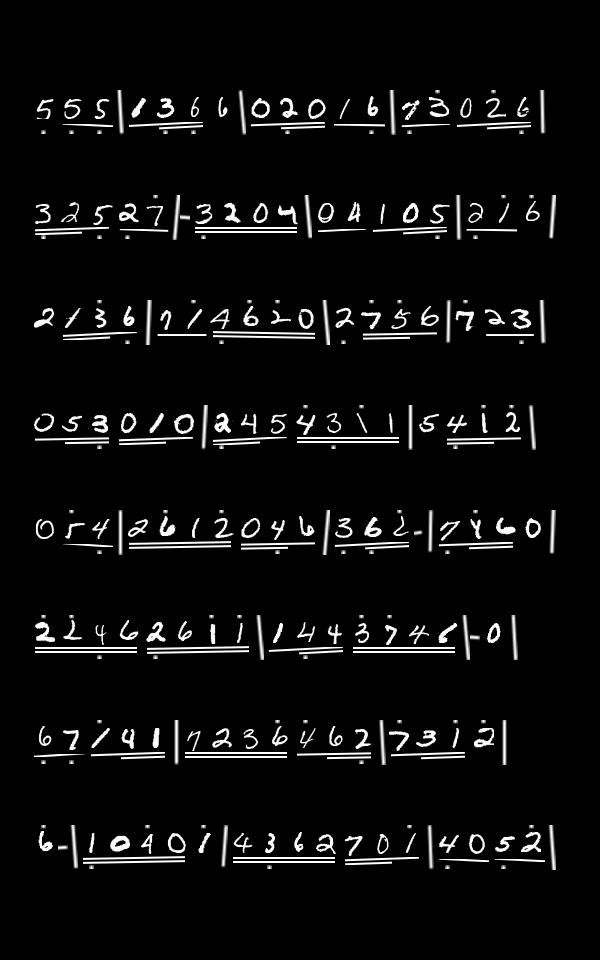 555|1366|02016|73026|
32527|-3204|04105|216|
2136|714620|2756|723|
053010|2454311|5412|
054|2612046|362-|7460|
22462611|1443746|-0|
67141|7236462|7312|
6-|10401|4362701|4052|